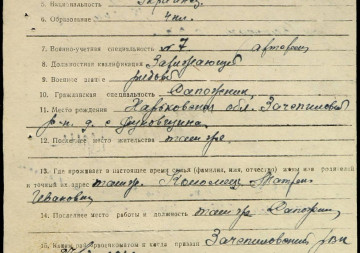 5. Национальность Украинец
6. Образование 4 кл.
7. Военно-учетная специальность № 7
8. Должностная квалификация Заряжающий
9. Военное звание рядовой
10. Гражданская специальность Сапожник
11. Место рождения Харьковская обл. Зачепиловский
р-н, д.
12. Постоянное место жительства там же
13. Где проживает в настоящее время семья (фамилия, имя, отчество) жены или родителей
и точный их адрес там же.
Иванович
14. Последнее место работы и должность там же Сапожник
15. Каким райвоенкоматом и когда призван Зачепиловский рвк